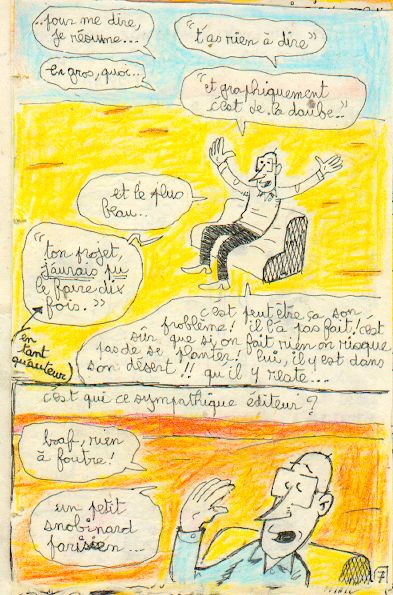 ..pour me dire,
je résume...
"t'as rien à dire"
En gros, quoi...
"et graphiquement
c'est de la daube..."
et le plus
beau..
"ton projet,
j'aurais pu
le faire dix
fois."
en
tant
qu'auteur
c'est peut être ça son
problème! il l'a pas fait! c'est
sûr que si on fait rien on risque
pas de se planter! lui, il y est dans
son désert!! qu'il y reste...
c'est qui ce sympathique éditeur?
boaf, rien
à foutre!
un petit
snobinard
parisien...
7